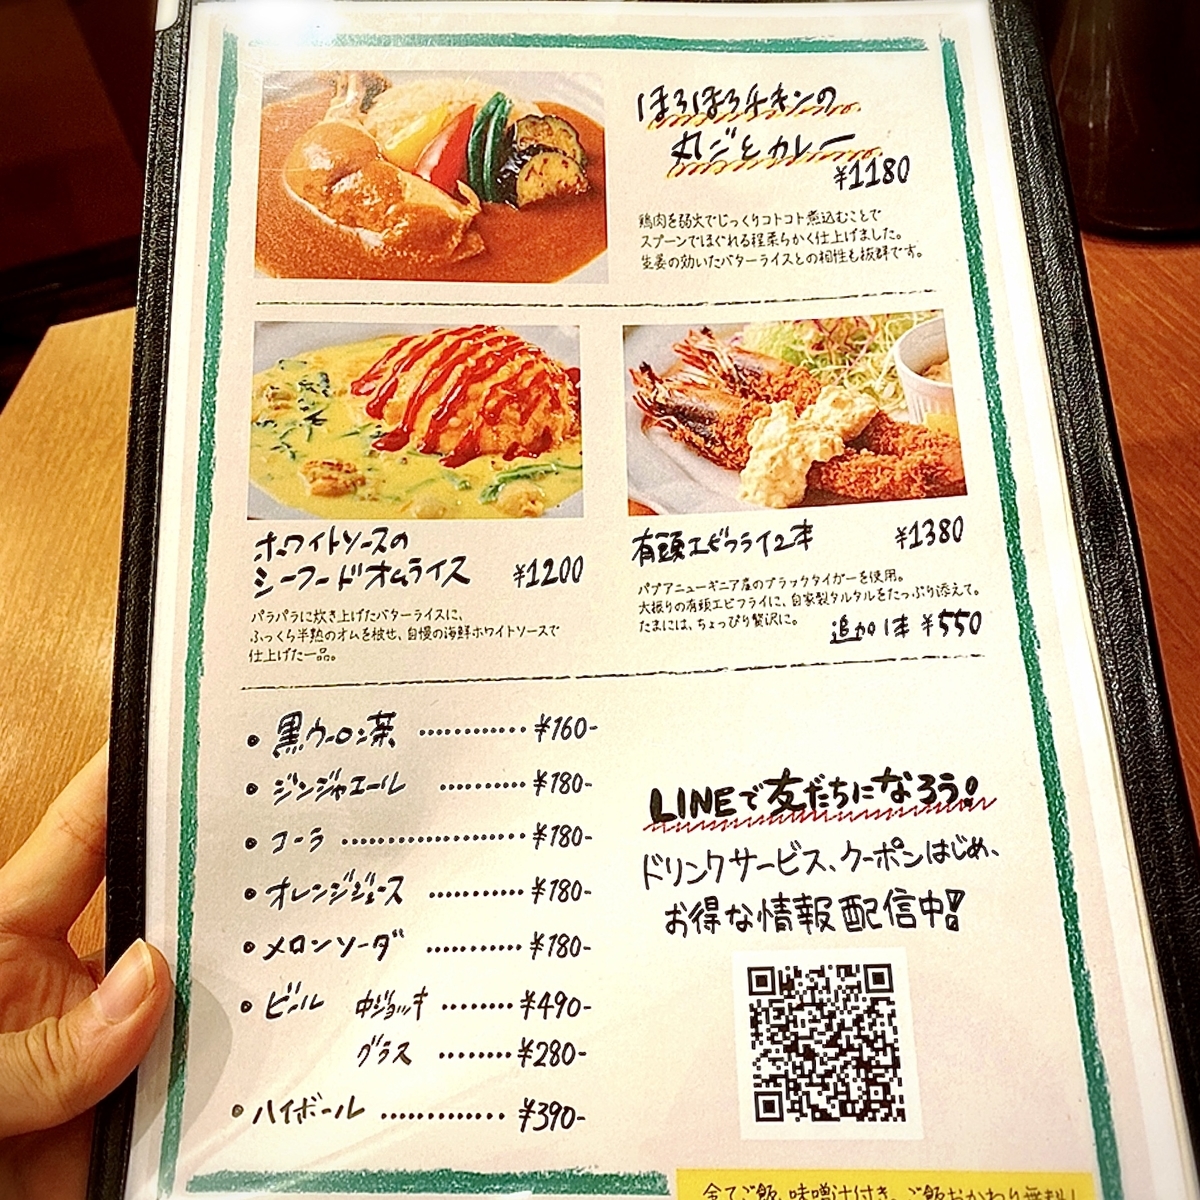 ほろほろチキンの
丸ごとカレー
¥1180
鶏肉を弱火でじっくりコトコト煮込むことで
スプーンでほぐれる程柔らかく仕上げました。
生姜の効いたバターライスとの相性も抜群です。
ホワイトソースの
シーフードオムライス ¥1200
パラパラに炊き上げたバターライスに、
ふっくら半熟のオムを被せ、自慢の海鮮ホワイトソースで
仕上げた一品。
有頭エビフライ2本 ¥1380
パプアニューギニア産のブラックタイガーを使用。
大振りの有頭エビフライに、自家製タルタルをたっぷり添えて。
たまには、ちょっぴり贅沢に。
追加1本 ¥550
• 黒ウーロン茶 ………… ¥160-
• ジンジャエール ………… ¥180-
• コーラ ………… ¥180-
• オレンジジュース ………… ¥180-
• メロンソーダ ………… ¥180-
• ビール 中ジョッキ ……… ¥490-
グラス ……… ¥280-
• ハイボール ………… ¥390-
LINEで友だちになろう!
ドリンクサービス、クーポンはじめ、
お得な情報配信中!!
全てご飯、味噌汁付き。ご飯おかわり無料!